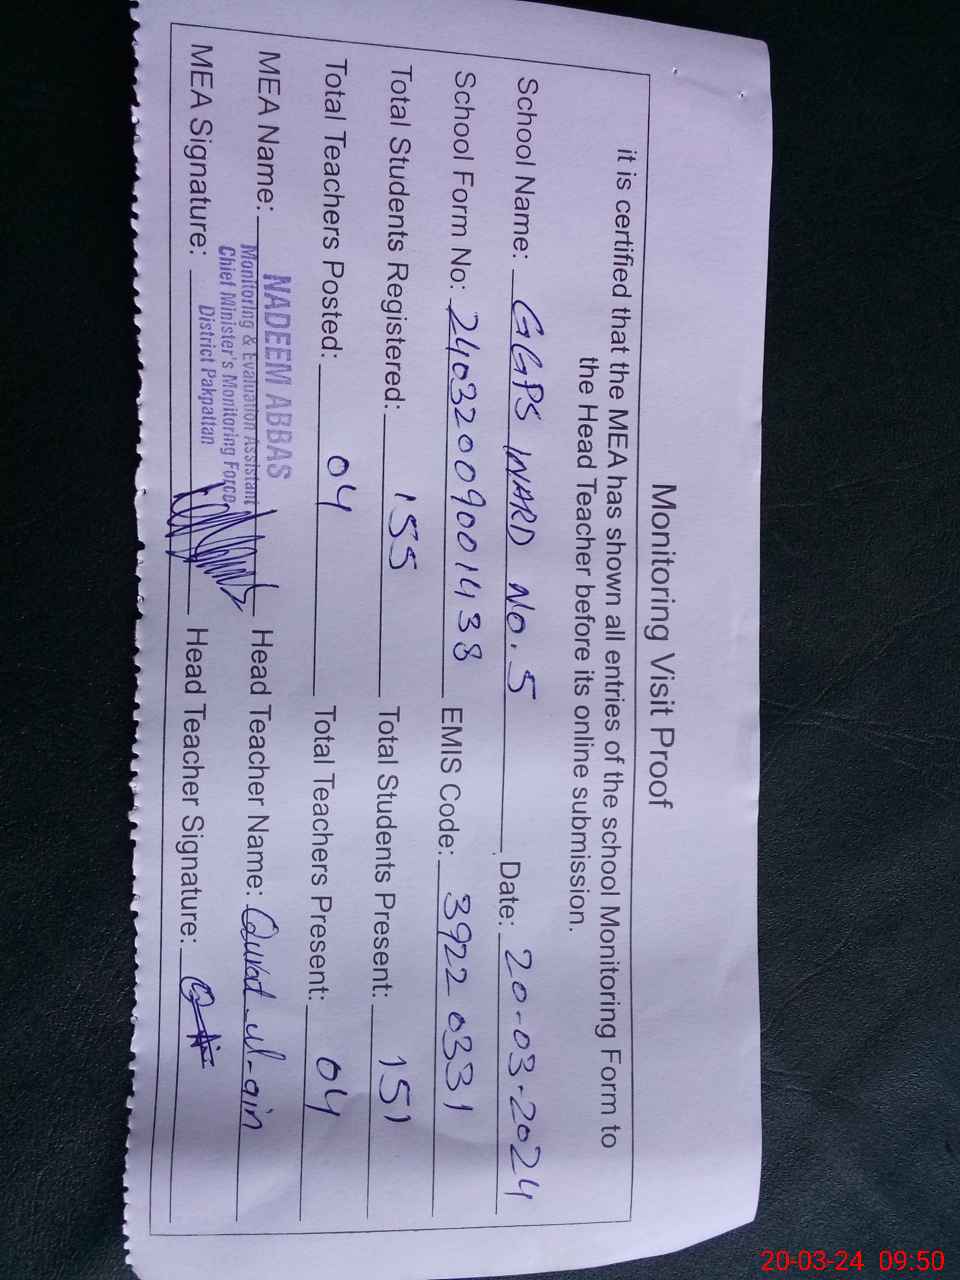 Monitoring Visit Proof
it is certified that the MEA has shown all entries of the school Monitoring Form to
the Head Teacher before its online submission.
School Name: GGPS WARD NO. 5 Date: 20-03-2024
School Form No: 24032009001438 EMIS Code: 39220331
Total Students Registered: 155 Total Students Present: 151
Total Teachers Posted: 04 Total Teachers Present: 04
MEA Name: NADEEM ABBAS Head Teacher Name: Qurat-ul-ain
Monitoring & Evaluation Assistant
Chief Minister's Monitoring Force
District Pakpattan
MEA Signature: Head Teacher Signature:
20-03-24 09:50